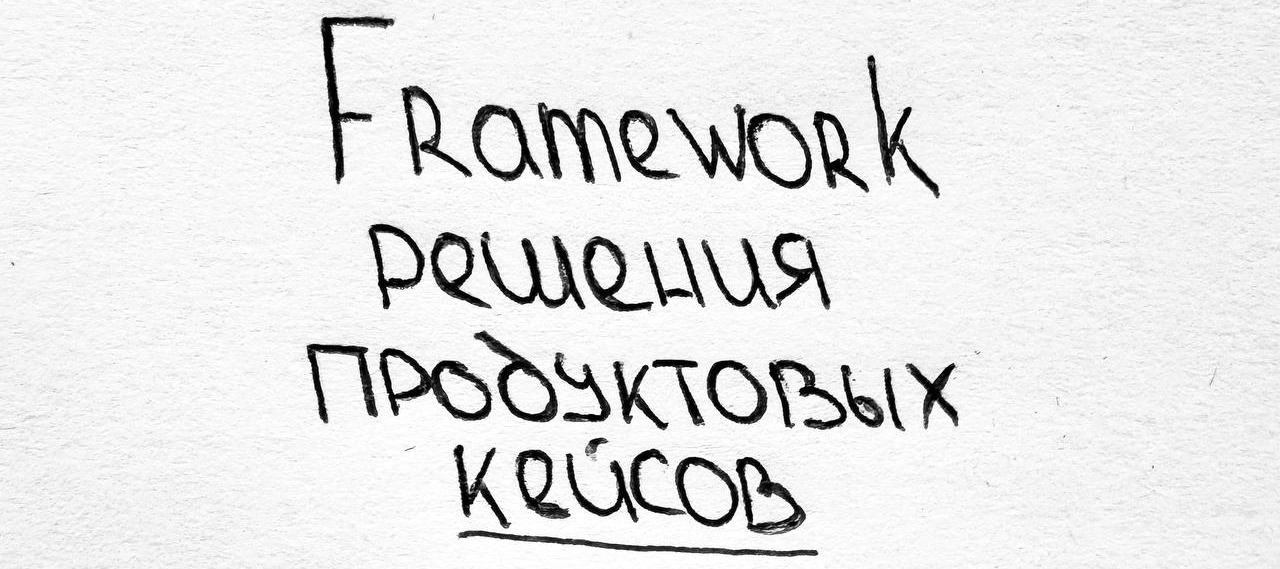 Framework
решения
продуктовых
кейсов